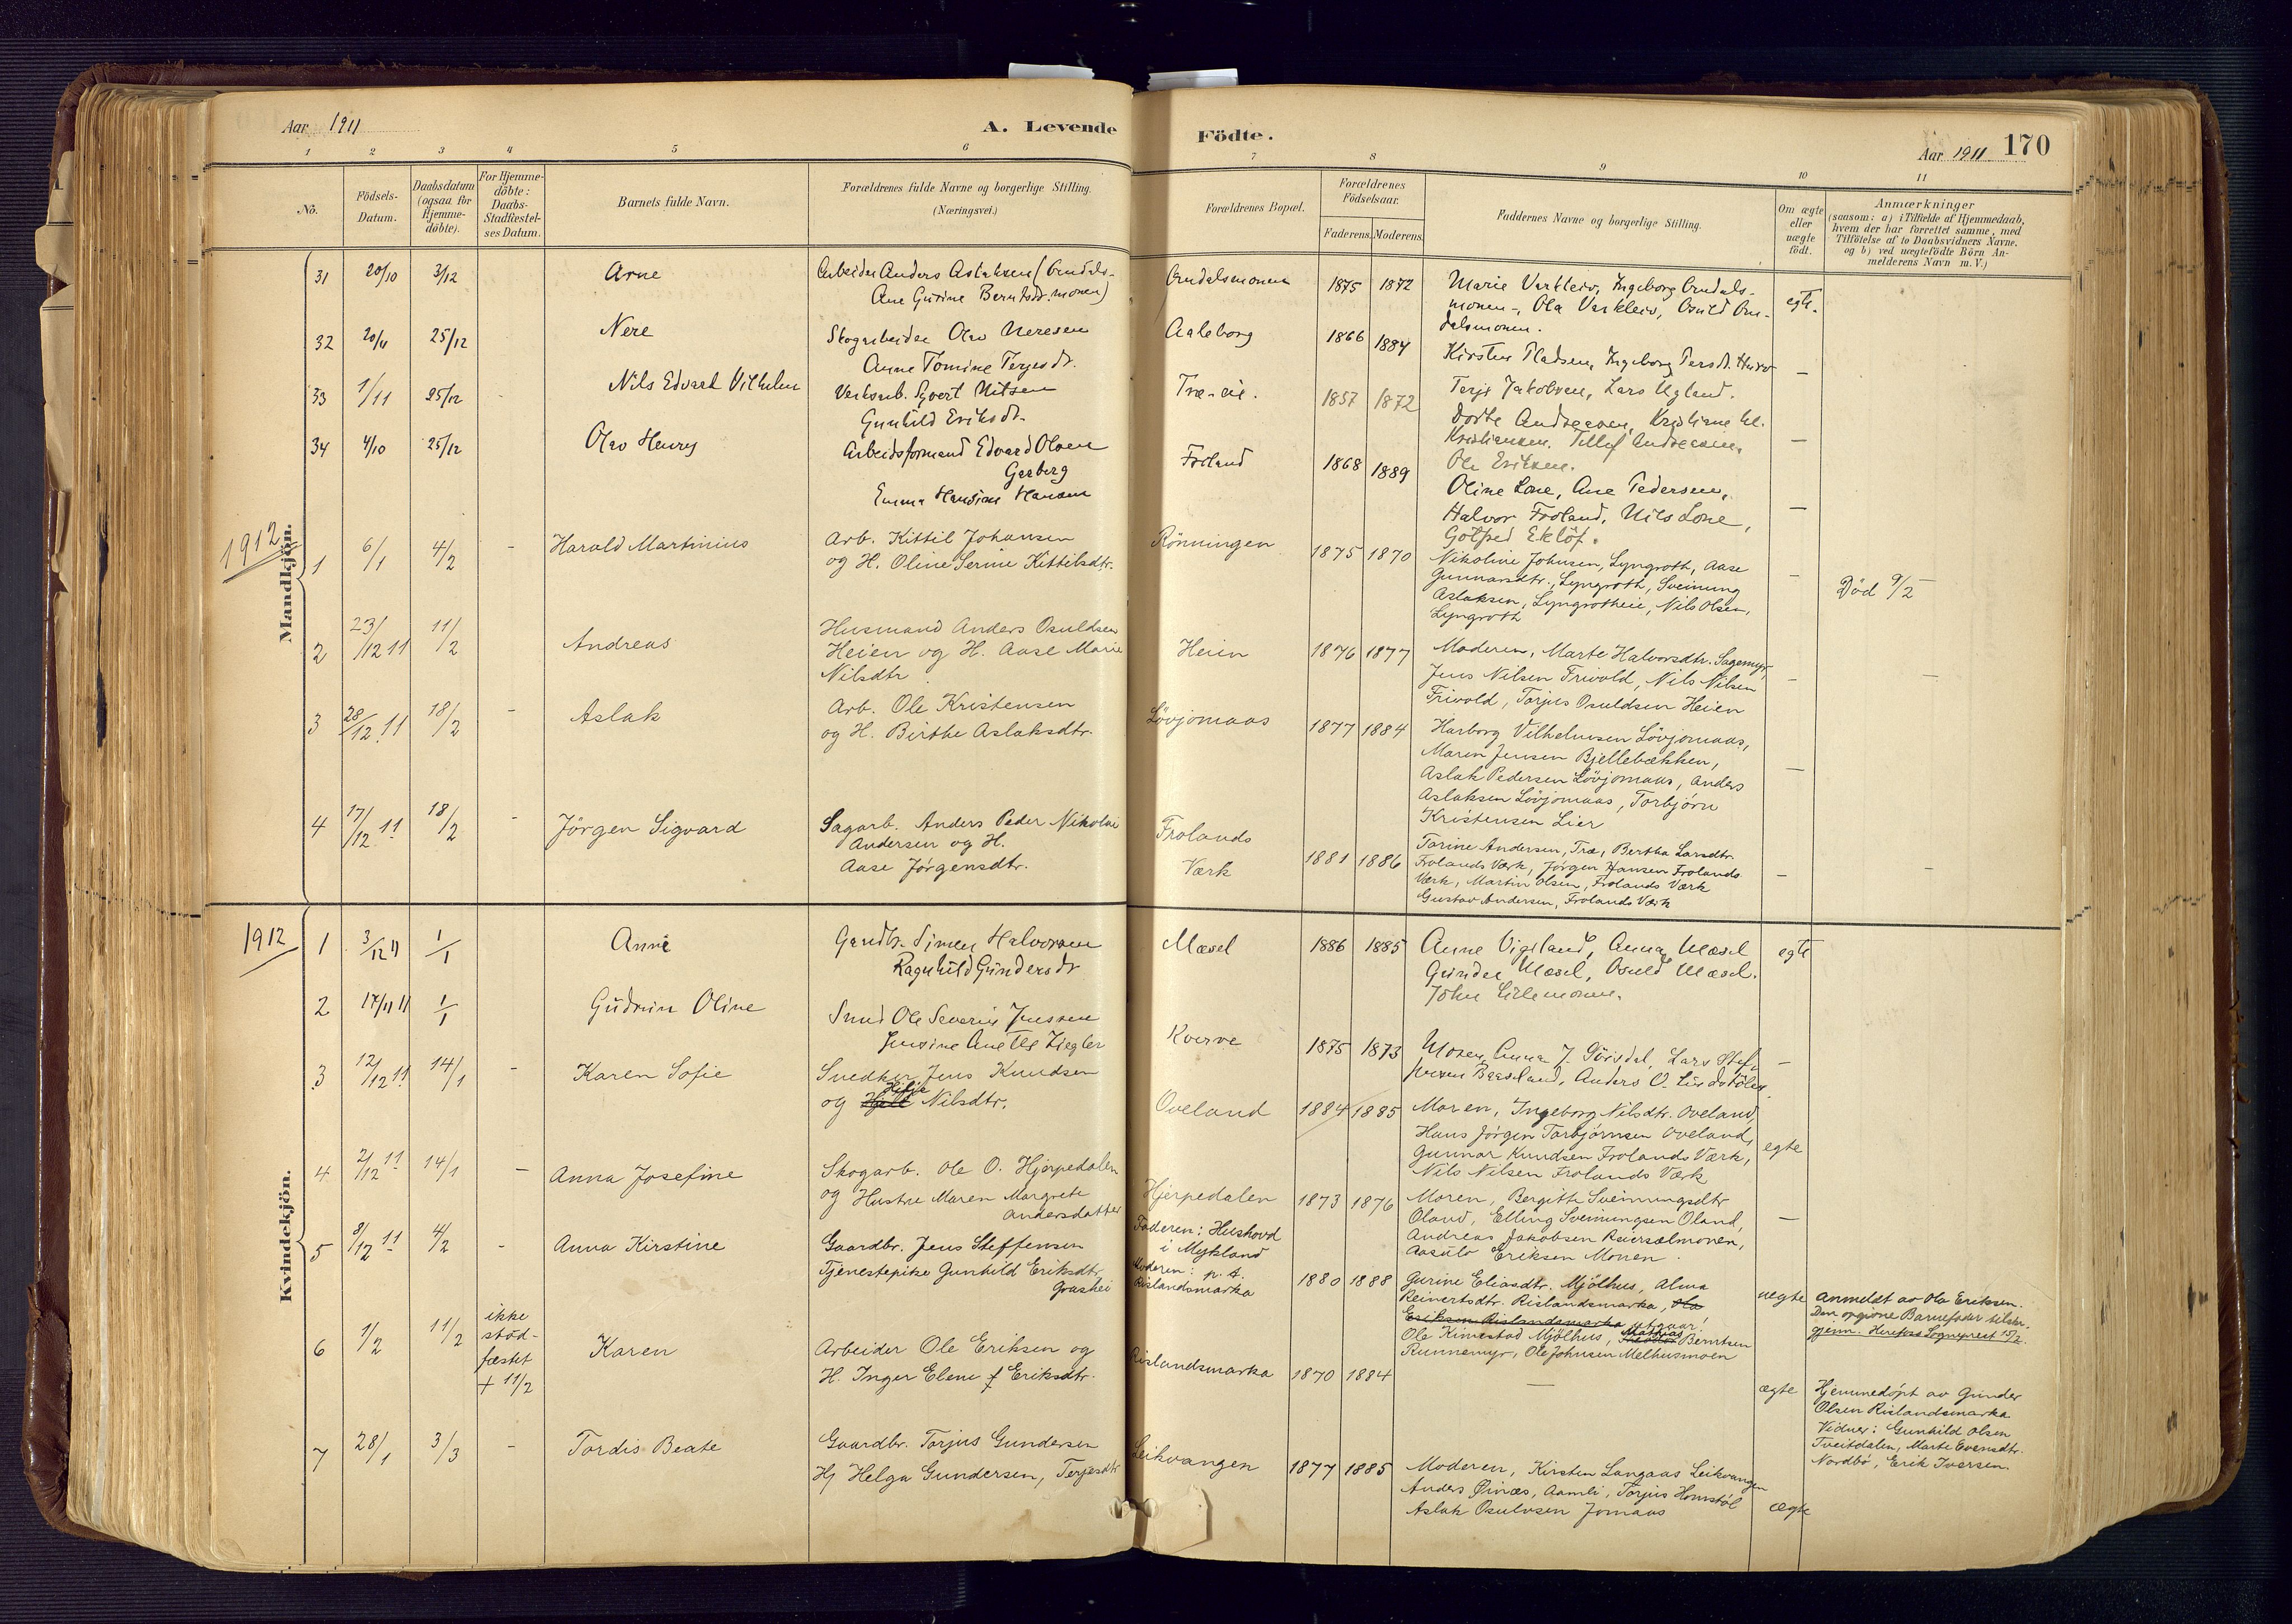 Aar 1911
A. Levende
Födte.
Aar 1911
170
1 2 3 4 5 6 7 8 9 10 11
No.
Födsels-
Datum.
Daabsdatum
(ogsaa for
Hjemme-
döbte).
For Hjemme-
döbte:
Daabs-
Stadfæstel-
ses Datum.
Barnets fulde Navn.
Forældrenes fulde Navne og borgerlige Stilling.
(Næringsvei.)
Forældrenes Bopæl.
Forældrenes
Födselsaar.
Faderens. Moderens.
Faddernes Navne og borgerlige Stilling.
Om ægte
eller
uægte
födt.
Anmærkninger
(saasom: a) i Tilfælde af Hjemmedaab,
hvem der har forrettet samme, med
Tilföielse af to Daabsvidners Navne.
og b) ved uægtefödte Börn An-
melderens Navn m. V.)
Mandkjön.
31 20/10 3/12 Arne
Arbeider Anders Aslaksen
Ane Gurine Berntsdt.
1875 1872
Marie Varkleiv, Ingeborg
Ola Varkleiv, Osuld
dalsmonen.
egte.
32 25/12 Nere
Skogarbeider Olav Neresen
Anne Tomine Terjesdt.
Aaleborg 1866 1884
Kirsten Pladsen, Ingeborg
Terje Jakobsen, Lars Ugland.
—
33 1/11 25/12 Nils Edvart Vilhelm
Verksarb. Evert Nilsen
Gunhild Eriksdt.
Træ-eie. 1857 1872
Dorte Andreasen, Kristiane
Kristiansen. Tellef Andreasen.
Ole Eriksen.
—
34 4/10 25/12 Olav Henry
Arbeidsformand Edvard Olsen
Garberg
Emma Hansine Hansen
Froland 1868 1889
Oline Lone, Ane Pedersen,
Halvor Froland, Nils Lone,
Gotfred Eklöf.
—
1912
1 6/1 4/2 - Harald Martinius
Arb. Kittil Johansen
og H. Oline Serine Kittilsdtr.
Rönningen 1875 1870
Nikoline Johnsen, Lyngroth, Aase
Gunnarsdtr., Lyngroth, Sveinung
Aslaksen, Lyngrotheie, Nils Olsen,
Lyngroth
- Död 9/2
2 23/12 11 11/2 Andreas
Husmand Anders Osuldsen
Heien og H. Aase Marie
Nilsdtr.
Heien 1876 1877
Moderen, Marte Halvorsdtr. Sagemyr,
Jens Nilsen Frivold, Nils Nilsen
Frivold, Torjus Osuldsen Heien
- -
3 28/12 11 18/2 - Aslak
Arb. Ole Kristensen
og H. Birthe Aslaksdtr.
Lövjomaas 1877 1884
Harborg Vilhelmsen Lövjomaas,
Maren Jensen Bjellebækken,
Aslak Pedersen Lövjomaas, Anders
Aslaksen Lövjomaas, Torbjörn
Kristensen Lier
-
4 17/12 11 18/2 - Jörgen Sigvard
Sagarb. Anders Peder Nikolai
Andersen og H.
Aase Jörgensdtr.
Frolands
Værk 1881 1886
Torine Andersen, Træ, Bertha Larsdtr.
Frolands Værk, Jörgen Hansen Frolands
Værk, Martin Olsen, Frolands Værk
Gustav Andersen, Frolands Værk
- -
Kvindekjön.
1912
1 3/12 11 1/1 Anne
Gardbr. Simen Halvorsen
Ragnhild Gundersdt
Mæsel 1886 1885
Anne Vigeland, Anna Mæsel
Gunder Mæsel, Osuld Mæsel.
John Lislemonen.
egte
2 17/11 11 1/1 Gudrun Oline
Smed Ole Severin Jensen
Jensine Anette Ziegler
Kverve 1875 1873
Moren, Anna J.
Anders O.
-
3 12/12 11 14/1 - Karen Sofie
Snedker Jens Knudsen
og Hilje Nilsdtr.
Oveland 1884 1885
Moren, Ingeborg Nilsdtr. Oveland,
Hans Jörgen Torbjörnsen Oveland,
Gunnar Knudsen Frolands Værk,
Nils Nilsen Frolands Værk
egte
4 2/12 11 14/1 - Anna Josefine
Skogarb. Ole O. Hjerpedalen
og Hustru Maren Margrete
Andersdatter
Hjerpedalen 1873 1876
Moren, Bergitte Sveinungsdtr
Oland, Elling Sveinungsen Oland,
Andreas Jakobsen Reierselmonen,
Aasulv Eriksen Monen.
—
5 8/12 11 4/2 - Anna Kirstine
Gaardbr. Jens Steffensen
Tjenestepike Gunhild Eriksdtr.
Grashei
Faderen: Hushovd
i Mykland
Moderen: p. t.
Rislandsmarka 1880 1888
Gurine Eliasdtr. Mjölhus, Alma
Reinertsdtr. Rislandsmarka, Ola
Eriksen Rislandsmarka utgaar!
Ole Kinestad Mjölhus, Mathias Berntsen
Runnemyr, Ole Johnsen Melhusmoen
uegte
Anmeldt av Ola Eriksen.
Den opgivne Barnefader
Sogneprest 15/2.
6 1/2 11/2
ikke
stad-
fæstet
+ 11/2
Karen
Arbeider Ole Eriksen og
H. Inger Elene f Eriksdtr.
Rislandsmarka 1870 1884
—
ægte
Hjemmedöpt av Gunder
Olsen Rislandsmarka
Vidner: Gunhild Olsen
Tveitdalen, Marte Evensdtr.
Nordbö, Erik Iversen.
7 28/1 3/3 - Tordis Beate
Gaardbr. Torjus Gundersen
Hj Helga Gundersen, Terjesdtr
Leikvangen 1877 1885
Moderen, Kirsten Langaas Leikvangen
Anders Öinæs, Aamli, Torjus Homstöl
Aslak Osulvsen Jomaas
ægte